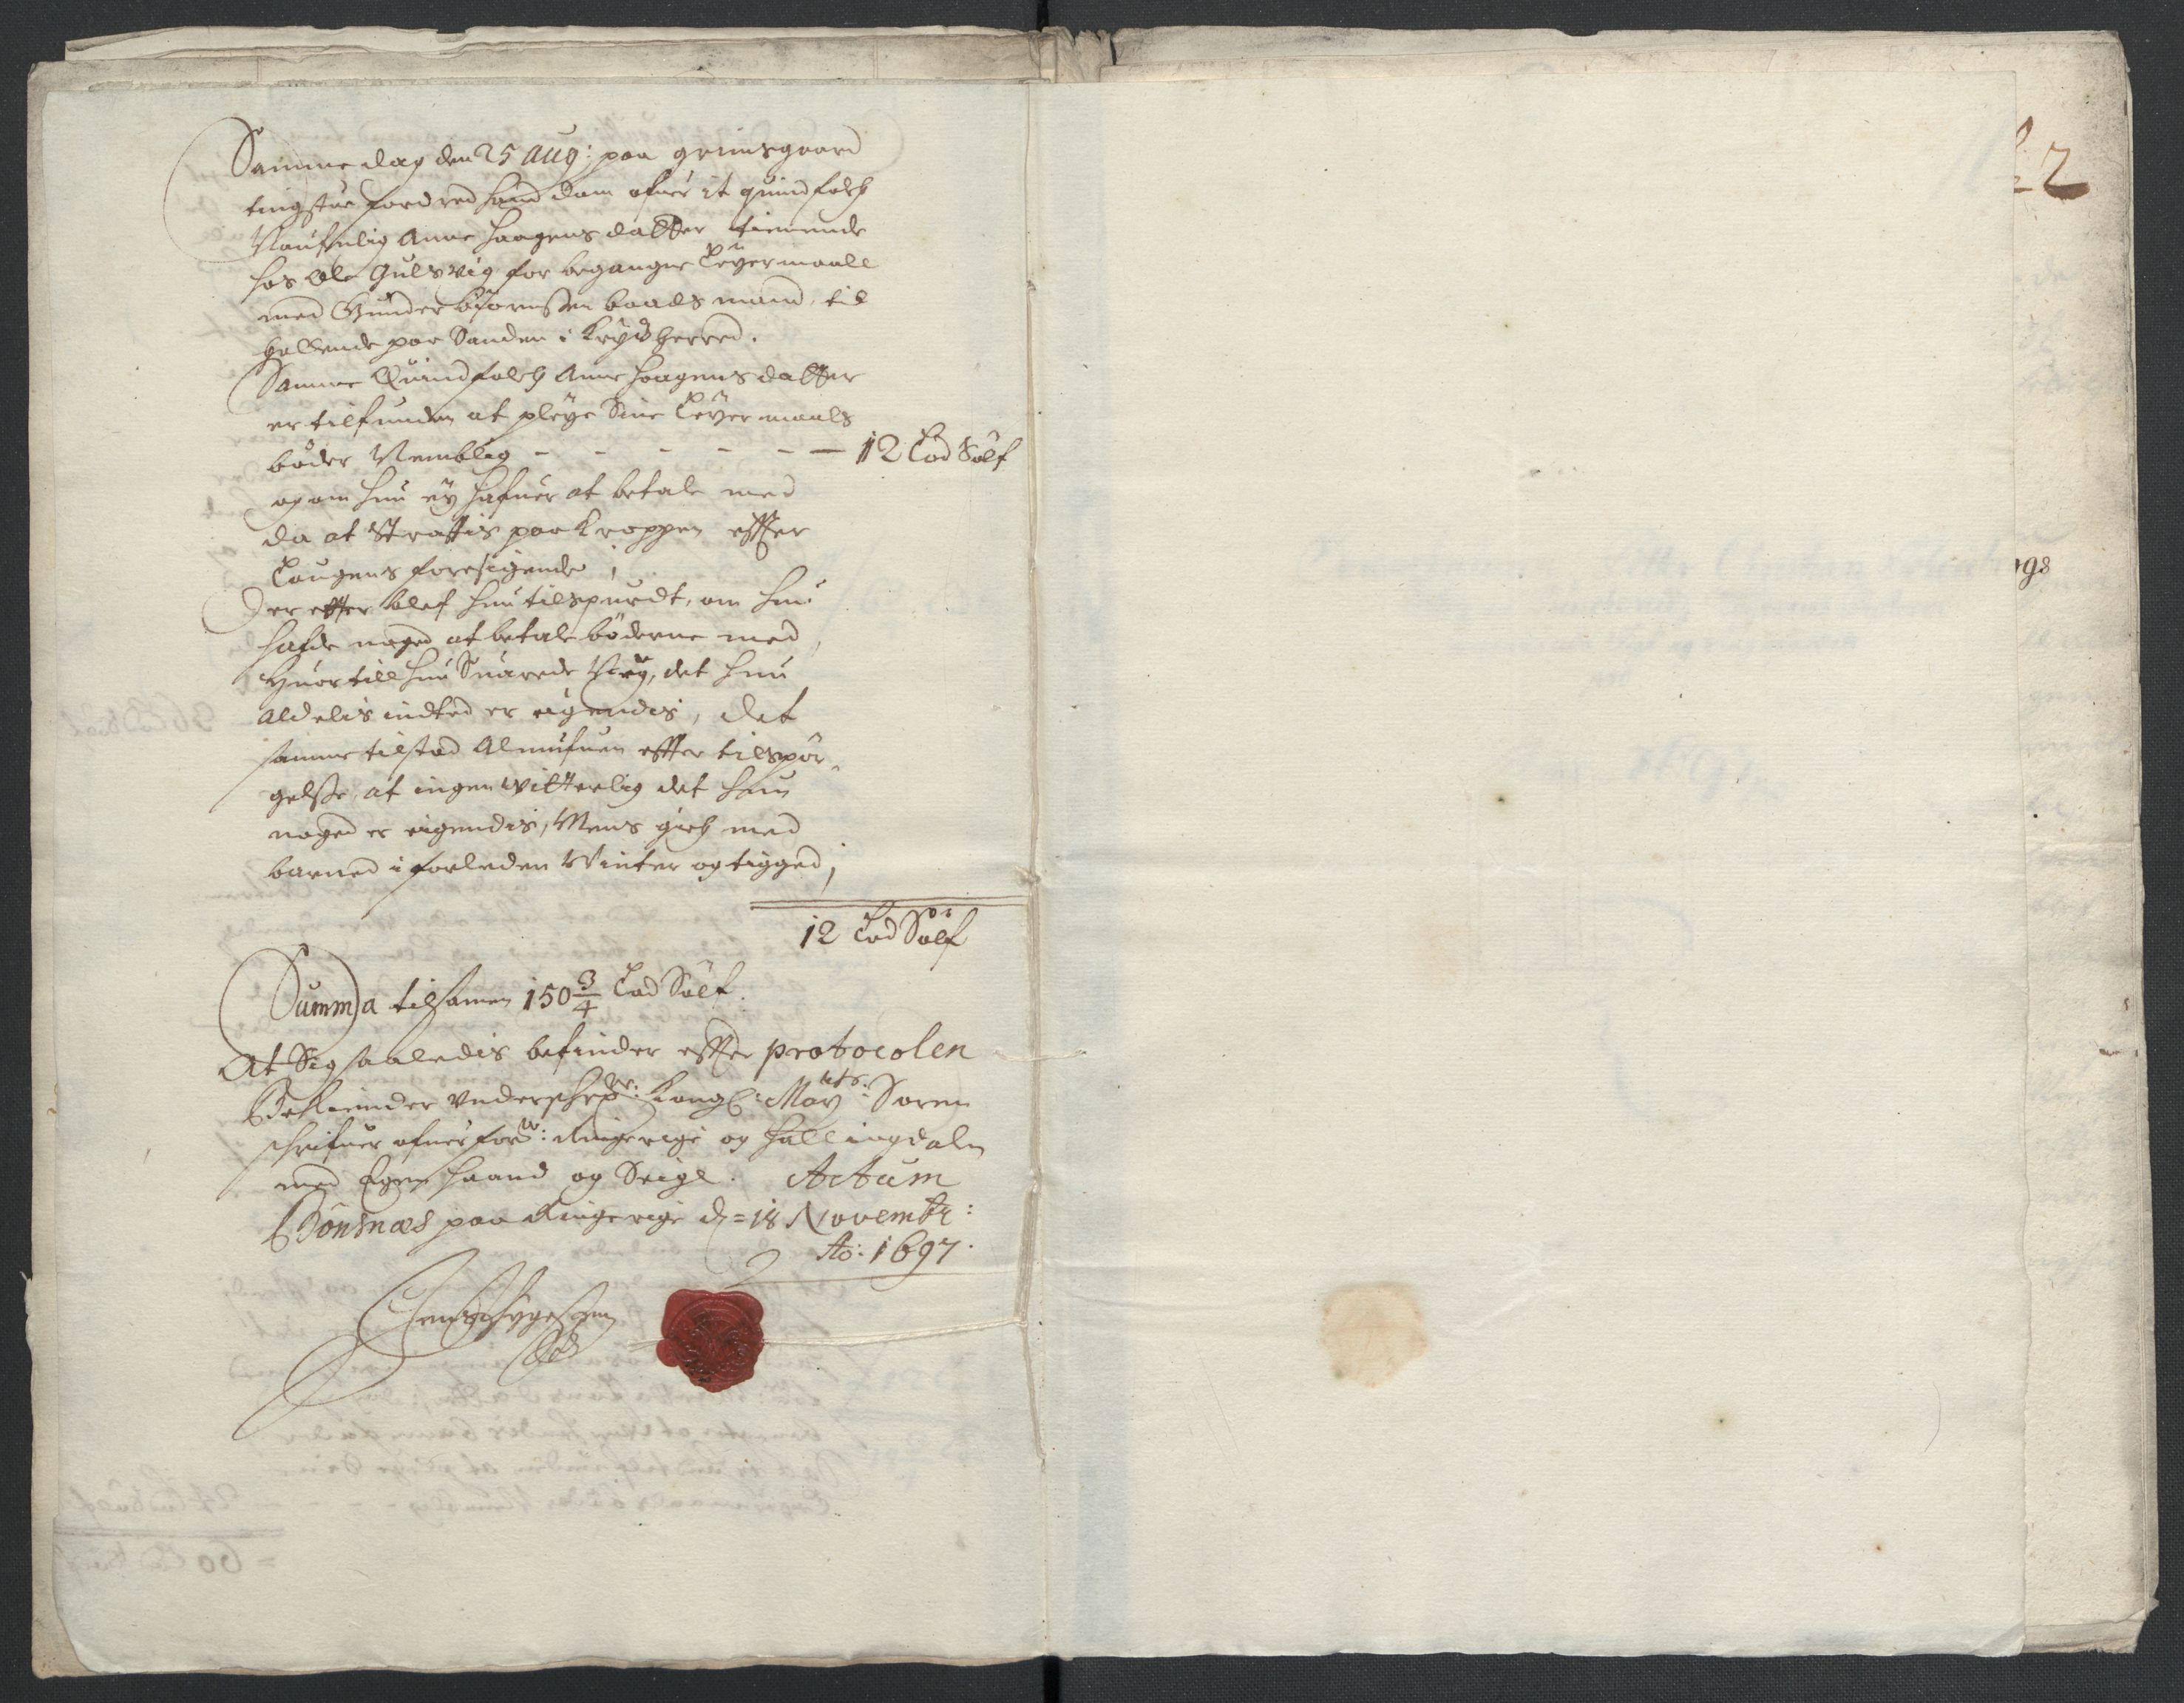 Samme dag den 25 Aug: paa Grimsgaard
tingstue fordred hand dom ofuer it quindfolch
Naufnlig Anne Haagensdatter tienende
hos Ole Gulsvig for begangne Leyermaall
med Gunder biørnssen baadsmand, til
holdende paa Sanden i Krydsherred.
Samme Quindfolch Anne Haagensdatter
er tilfunden at pleye Sine Leyermaals
bøder Nemblig - - - - - - 12 Lod Sølf
og om hun ey hafuer at betale med
da at Straffis paa Kroppen effter
Laugens foresigende ;
Der effter blef hun tilspurdt, om hun
hafde noged at betale bøderne med,
Huortill hun Suarede Ney, det hun
aldelis indted er eigendis, det
samme tilstod Almufuen effter tilspør-
gelsse, at ingen witterlig det hun
noged er eigendis, Mens gich med
barned i forleden Winter og tigged ;
12 Lod Sølf
Summa tilsamen 150 3/4 Lod Sølf.
At Sig saaledis befinder effter protocolen
Bekiender underschrefr: Kongl: Mayts: Soren
schrifuer ofuer for: Ringerige og Hallingdalen
med Egen Haand og Seigl. Actum
Bønsnæs paa Ringerige d: 18 Novembr:
Ao: 1697.
98
2